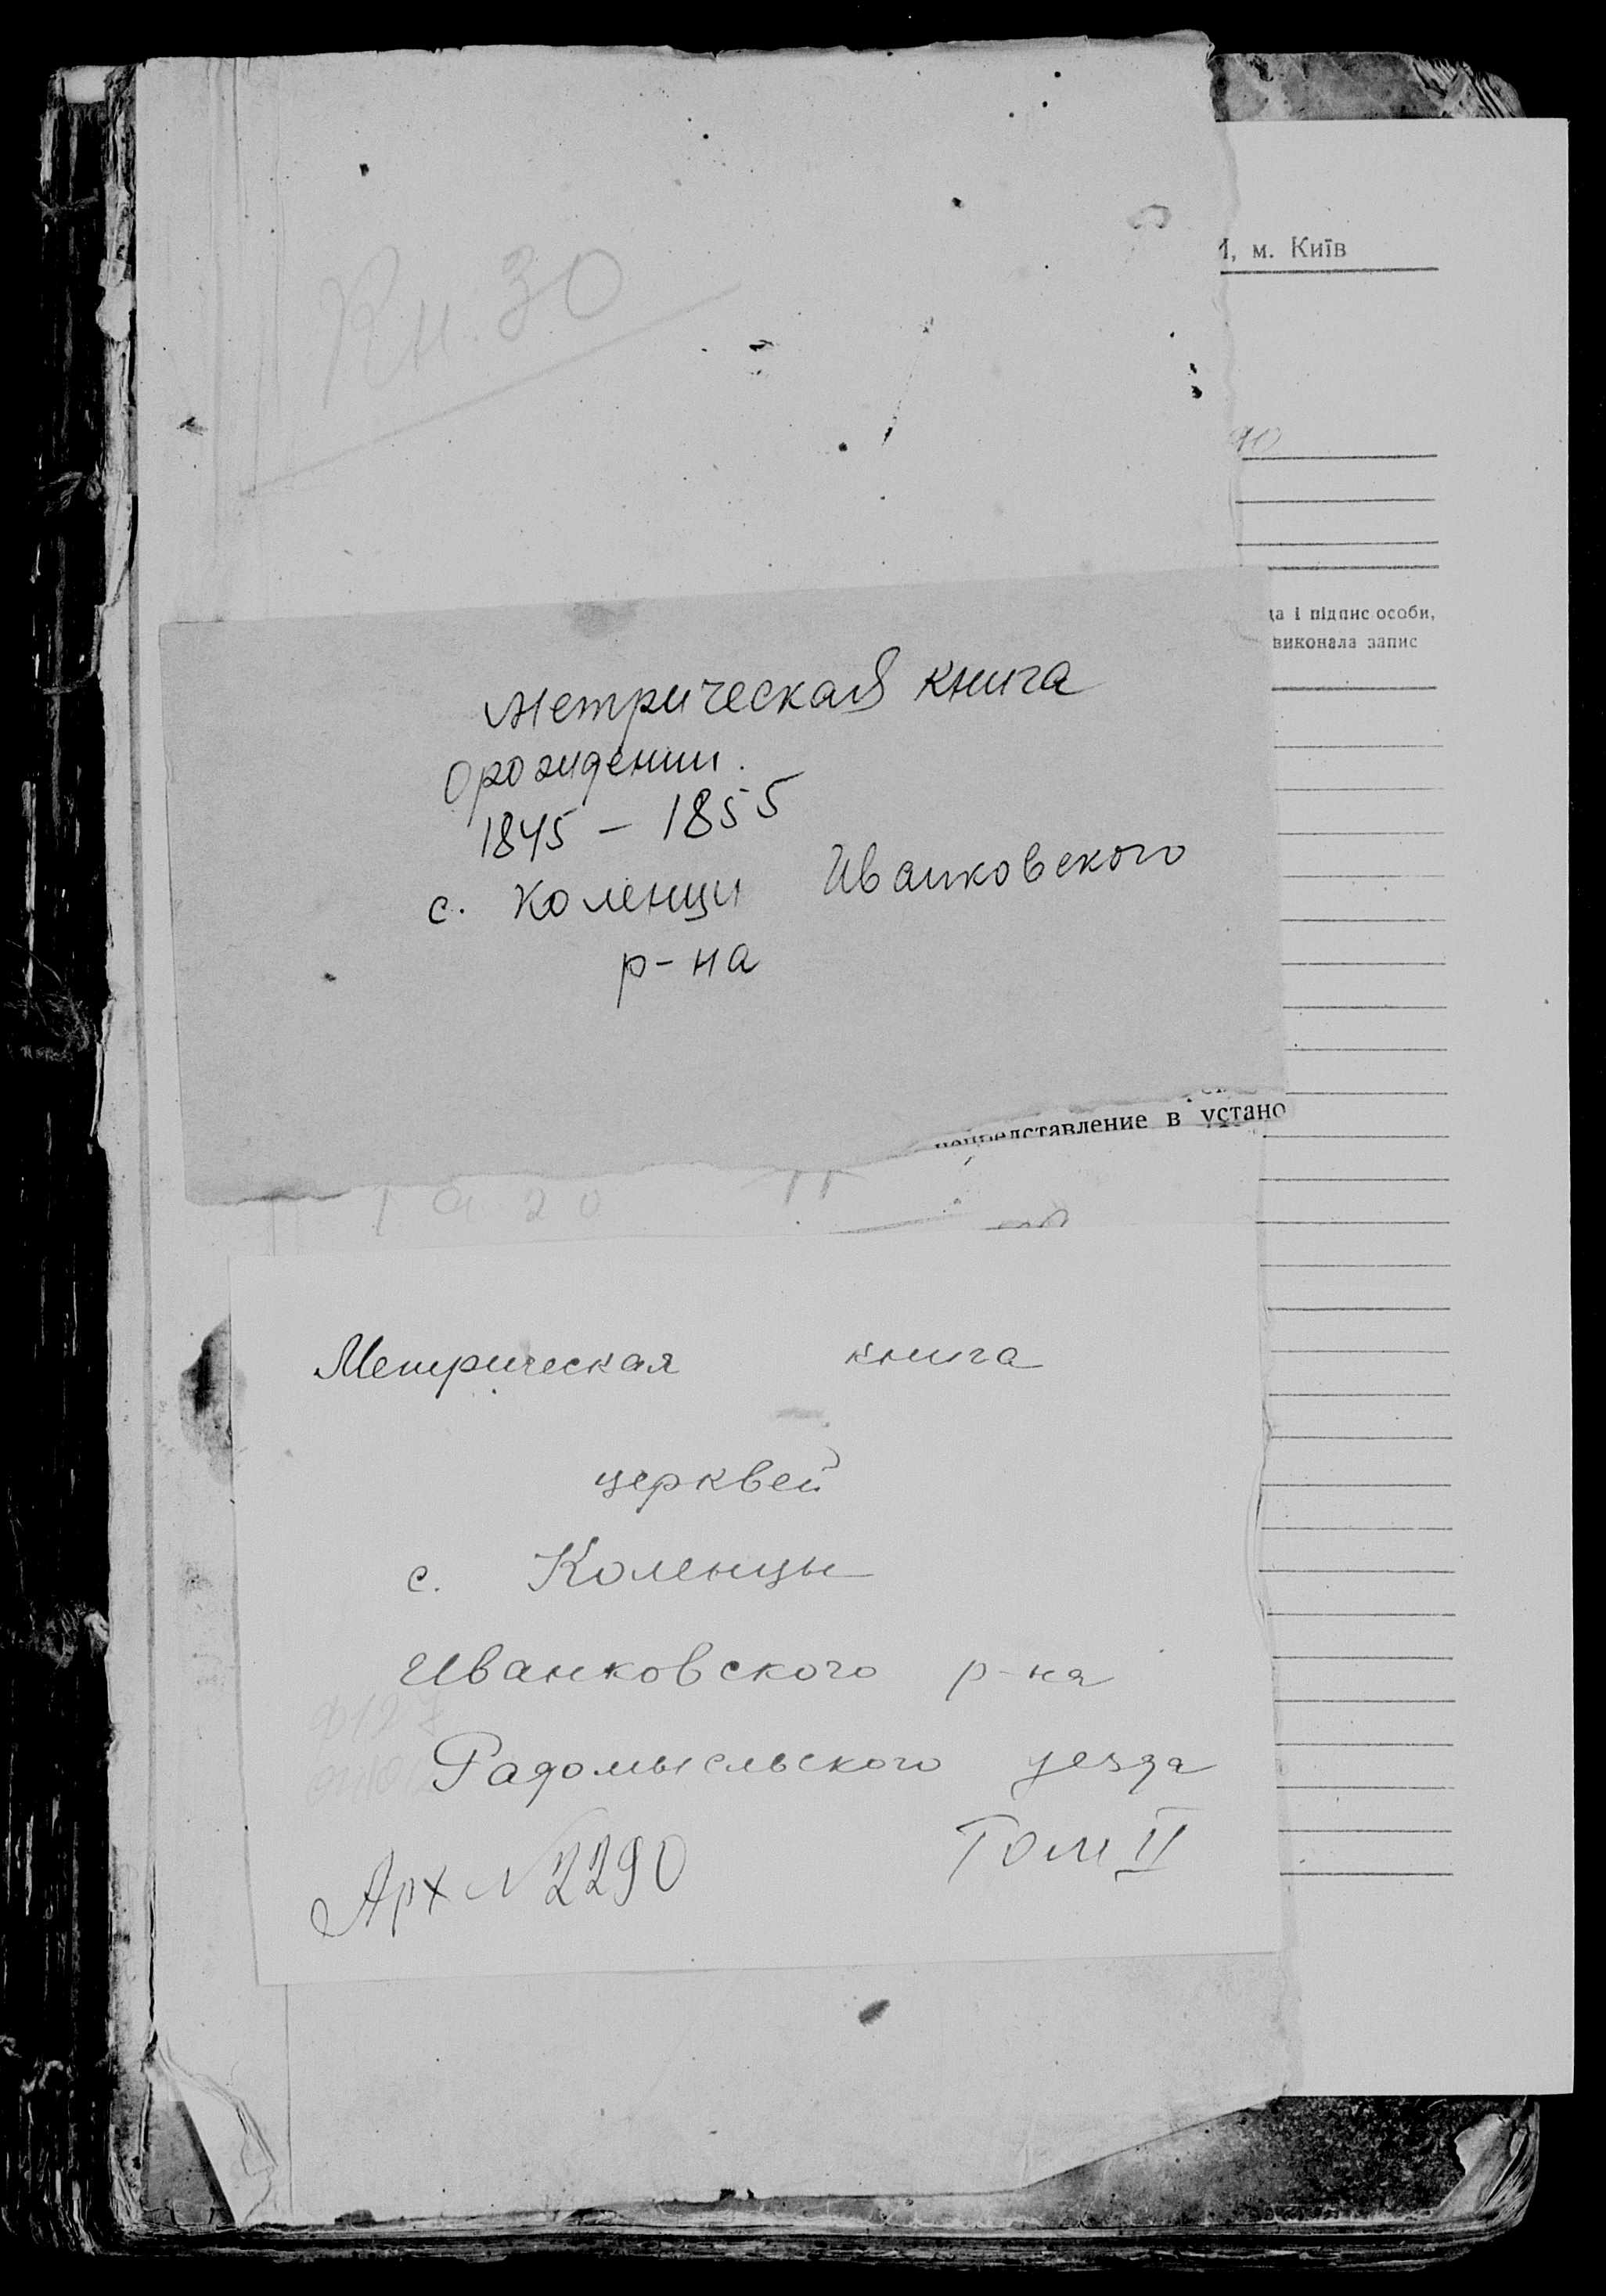 Кн. 30
И, м. Київ
90
да і підпис особи,
виконала запис
Метрическая книга
о рождении.
1845 – 1855
с. Коленци Иванковского
р-на
непредставление в устано
1920
Метрическая книга
церквей
с. Коленцы
Иванковского р-на
Радомысльского уезда
Арх №2290 Том II